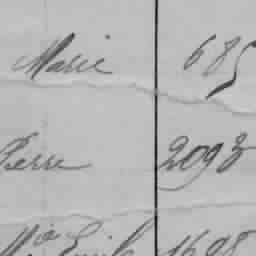 Marie 685
Pierre 2093
Mia Emile 1698